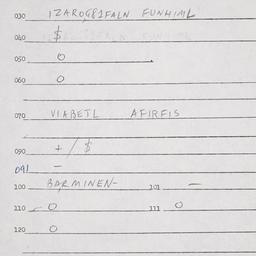 030 IZAROG81FALN FUNHIML
040 $
050 O
060 O
070 VIABETL AFIRFIS
090 + / $
091 -
100 BARMINEN- 101 -
110 O 111 O
120 O